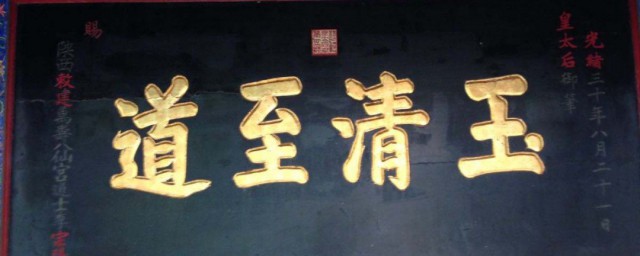 光緒三十年八月二十一日
皇太后御筆
玉清至道
賜
陝西敕建萬壽八仙宮道士李宗